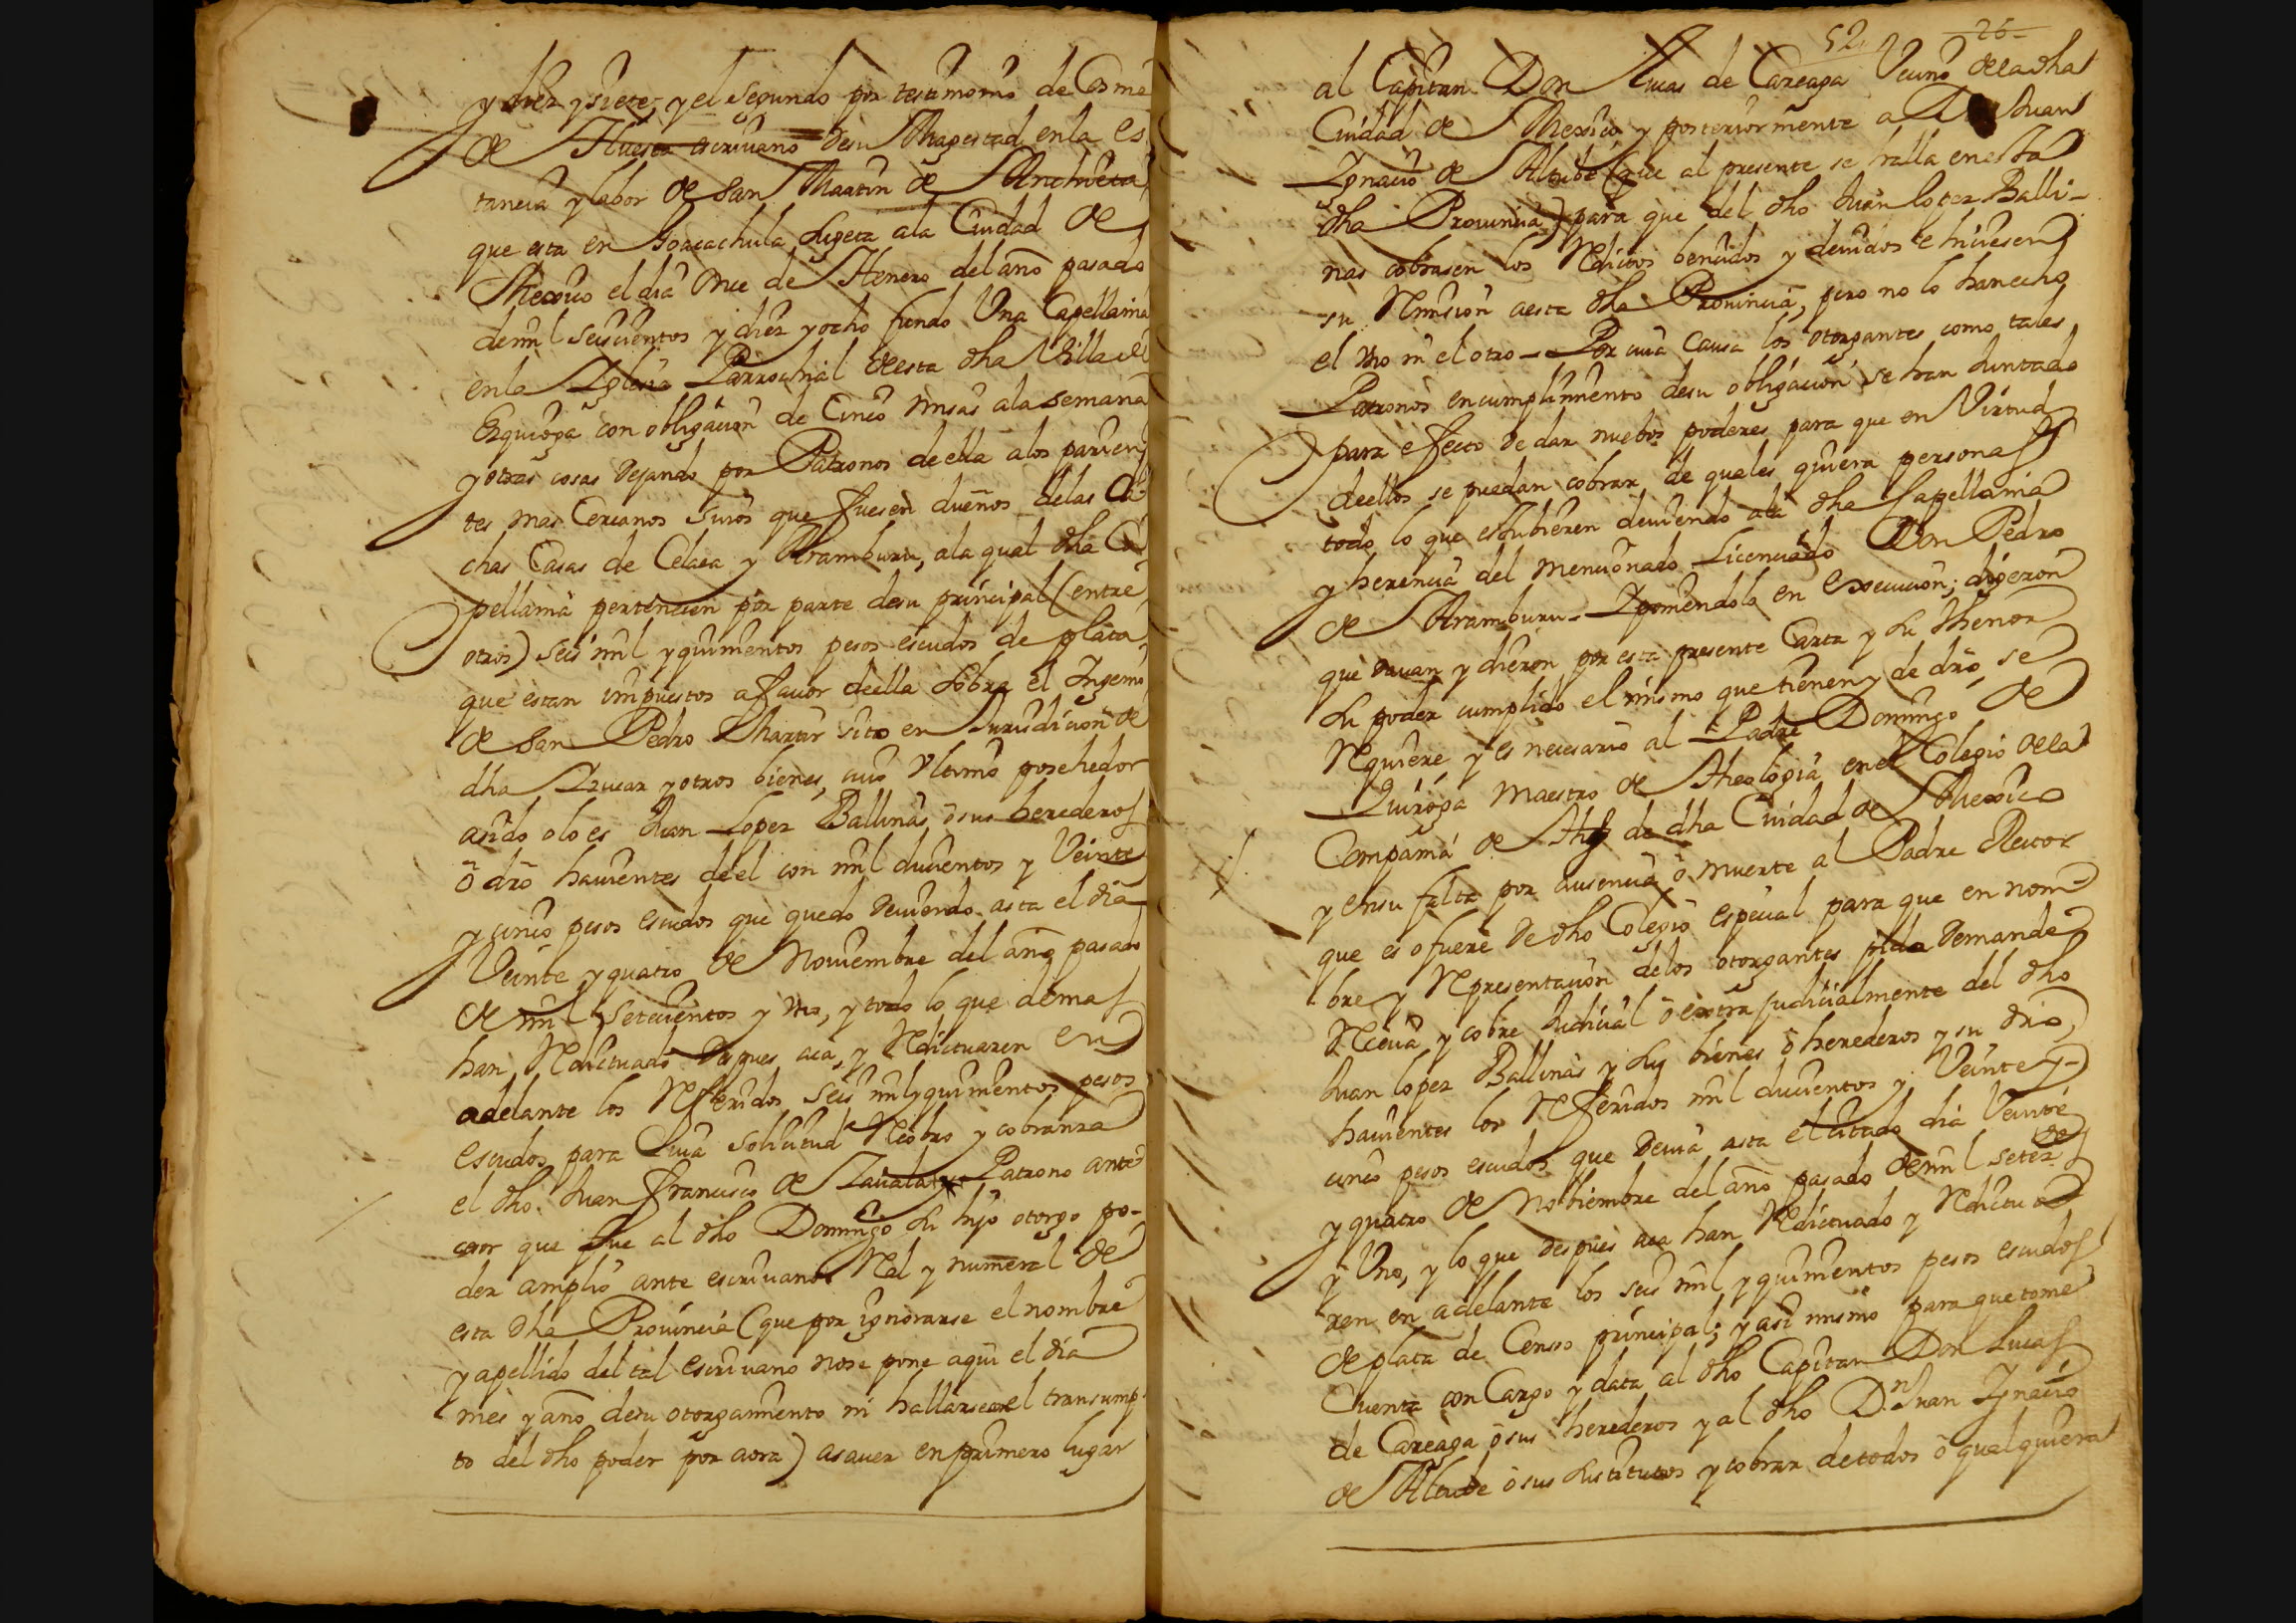 y diez y siete, y el segundo por testimonio de Cosme
de Huesca escriuano de su Magestad en la es
tancia y labor de San Martin de Anchieta
que esta en Goacachula sugeta a la Ciudad de
Mexico el dia once de Henero del año pasado
de mil seiscientos y diez y ocho fundo Una Capellania
en la Iglesia Parrochial de esta dha Villa de
Ezquioga con obligacion de Cinco misas a la semana
y otras cosas dejando por Patronos de ella a los parien
tes mas Cercanos suios que fuesen dueños de las di
chas Casas de Celaea y Aramburu, a la qual dha Ca
pellania pertenecen por parte de su principal (entre
otros) seis mil y quinientos pesos escudos de plata
que estan impuestos a fauor de ella sobre el Ingenio
de San Pedro Martir sito en Jurisdicion de
dha Izucar y otros bienes, cuio Ultimo posehedor
a sido o lo es Juan Lopez Ballinas o sus herederos
ō dro̅ hauientes de el con mil ducientos y Veinte
y cinco pesos escudos que quedo deuiendo asta el dia
Veinte y quatro de Nouiembre del año pasado
de mil setecientos y uno, y todo lo que demas
han Redituado despues aca, y Redituaren en
adelante los Referidos seis mil y quinientos pesos
escudos, para Cuia solicitud Recobro y cobranza
el dho Juan Francisco de Zauala Patrono ante
cesor que fue al dho Domingo su hijo otorgo po-
der amplio ante escriuano Real y numeral de
esta dha Prouincia (que por ignorarse el nombre
y apellido del tal escriuano no se pone aqui el dia
mes y año de su otorgamiento ni hallarse el transump
to del dho poder por aora) a sauer en primero lugar
52 26
al Capitan Don Lucas de Careaga Vecino de la dha
Ciudad de Mexico y posteriormente a D Juan
Ignacio de Altube (que al presente se halla en esta
dha Prouincia) para que del dho Juan lopez Balli-
nas cobrasen los Reditos bencidos y deuidos e hiciesen
su Remision a esta dha Prouincia, pero no lo han echo
el uno ni el otro - Por cuia Causa los otorgantes como tales
Patronos en cumplimiento de su obligacion se han Juntado
para efecto de dar nuebos poderes para que en Virtud
de ellos se puedan cobrar de quales quiera personas
todo lo que estubieren deuiendo a la dha Capellania
y herencia del mencionado Licenciado Don Pedro
de Aramburu - I poniendolo en Execucion; digeron
que dauan y dieron por esta presente Carta y su thenor
su poder cumplido el mismo que tienen y de dro̅ se
Requiere y es necesario al Padre Domingo de
Quiroga Maestro de Theologia en el Colegio de la
Compañia de Jhs de dha Ciudad de Mexico
y en su falta por ausencia ō muerte al Padre Rector
que es o fuere de dho Colegio especial para que en nom-
bre y Representacion de los otorgantes pida demande
Reciua y cobre Judicial ō extra judicialmente del dho
Juan lopez Ballinas y sus bienes ō herederos y su dro̅
hauientes los Referidos mil ducientos y Veinte y-
cinco pesos escudos que deuia asta el citado dia Veinte
y quatro de Nobiembre del año pasado de mil setez.os
y Uno, y lo que despues aca han Redituado y Reditua
ren en adelante los seis mil y quinientos pesos escudos
de plata de Censo principal; y asi mismo para que tome
Cuenta con Cargo y data al dho Capitan Don Lucas
de Careaga ō sus herederos y al dho D.n Juan Ignacio
de Altube ō sus sustitutos y cobrar de todos ō qualquiera